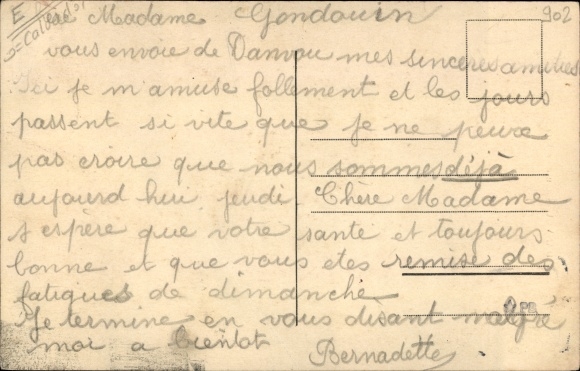 E
=Calvados
902
Madame Gondouin
vous envoie de Danvou mes sincères amitiés
Ici je m'amuse follement et les jours
passent si vite que je ne peux
pas croire que nous sommes déjà
aujourd hui jeudi. Chère Madame
j espère que votre santé et toujours
bonne et que vous etes remise des
fatigues de dimanche
Je termine en vous disant malgré
moi a bientot
Bernadette